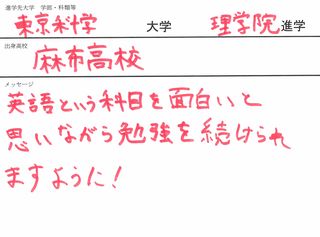 進学先大学 学部・科類等
東京科学 大学 理学院 進学
出身高校
麻布高校
メッセージ
英語という科目を面白いと
思いながら勉強を続けられ
ますように！